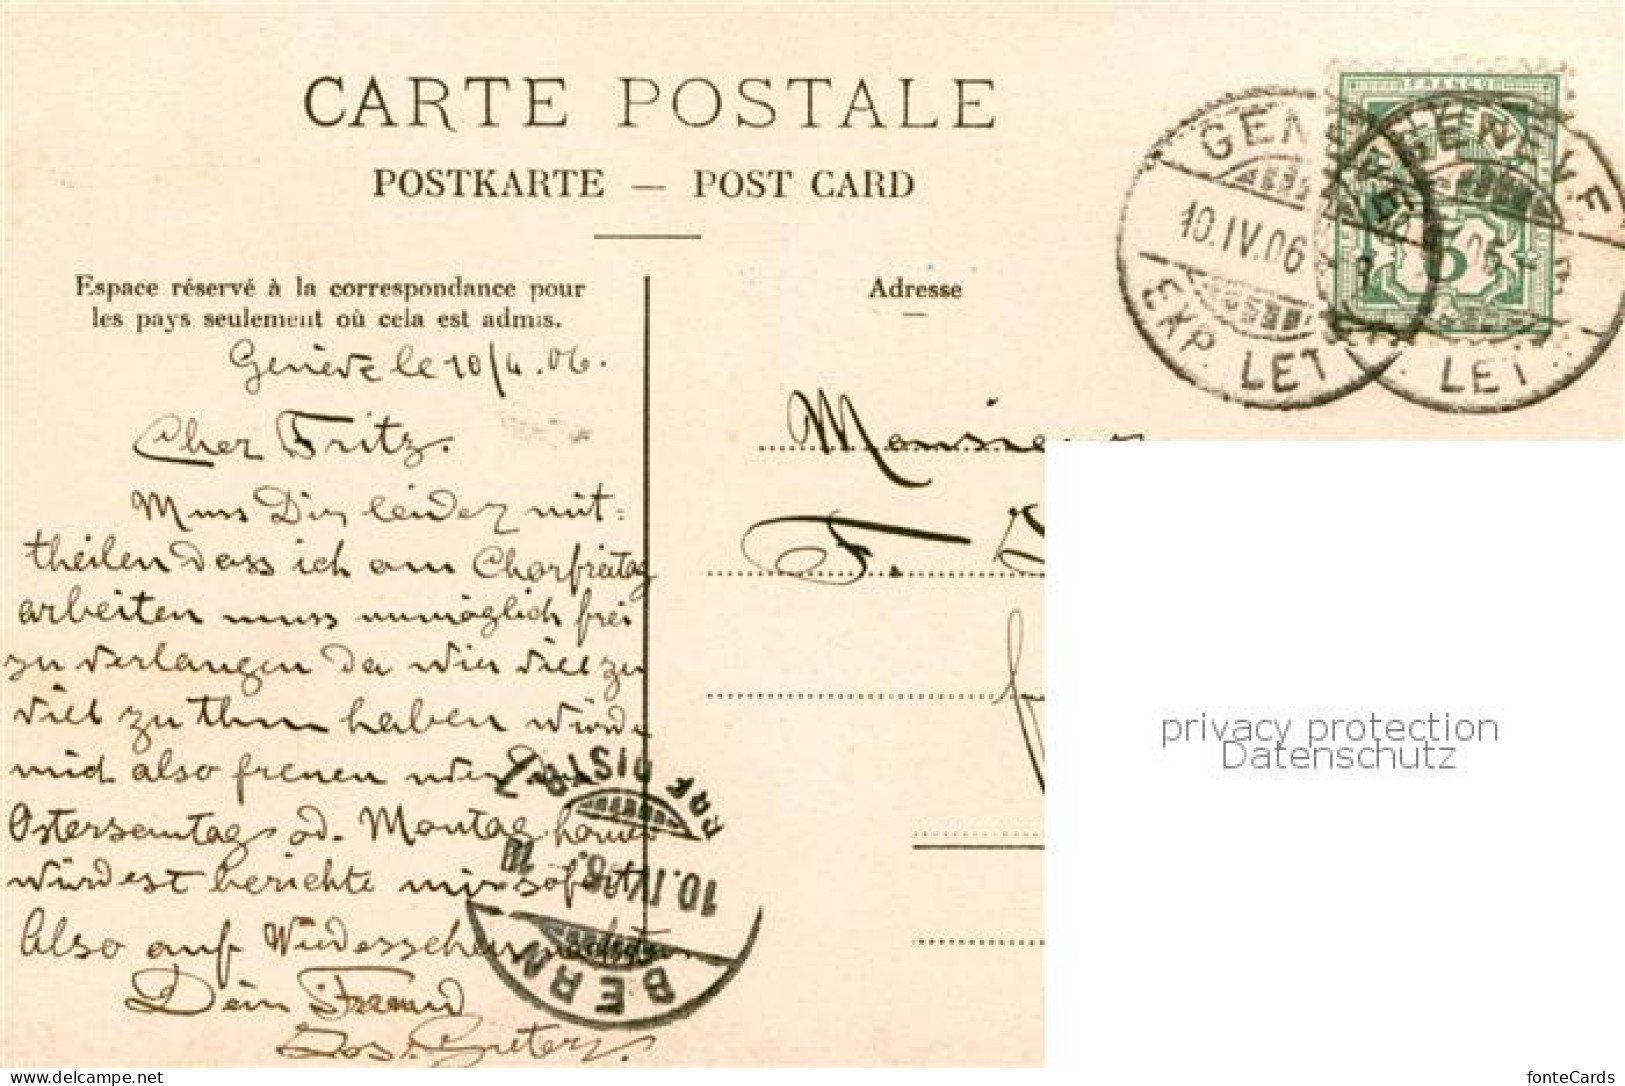 CARTE POSTALE
POSTKARTE — POST CARD
Espace réservé à la correspondance pour
les pays seulement où cela est admis.
Adresse
FRANCO
GENÈVE
10.IV.06
EXP. LET.
GENÈVE
LET.
5
Genève le 10/4.06.
Cher Fritz.
Muss Dir leider mit-
theilen dass ich am Charfreitag
arbeiten muss unmöglich frei
zu verlangen da wir viel zu
viel zu thun haben würde
mich also freuen wenn Du
Ostersonntag od. Montag
würdest berichte mir sofort
Also auf Wiedersehen
Dein Freund
Jos.
Monsieur
F.
BERN
10.IV.06.
BRF. DISTR.
privacy protection
Datenschutz
www.delcampe.net
fonteCards